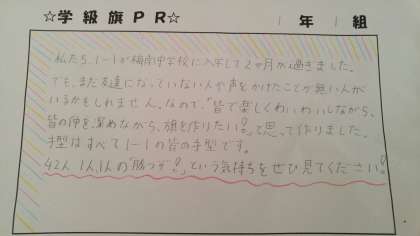 ☆学級旗PR☆ 1年1組
私たち1-1が梅南中学校に入学して2ヶ月が過ぎました。
でも、まだ友達になっていない人や声をかけたことが無い人が
いるかもしれません。なので、「皆で楽しくわいわいしながら、
皆の仲を深めながら、旗を作りたい!」って思って作りました。
手型はすべて1-1の皆の手型です。
42人1人1人の「勝つぞ!」という気持ちをぜひ見てください!